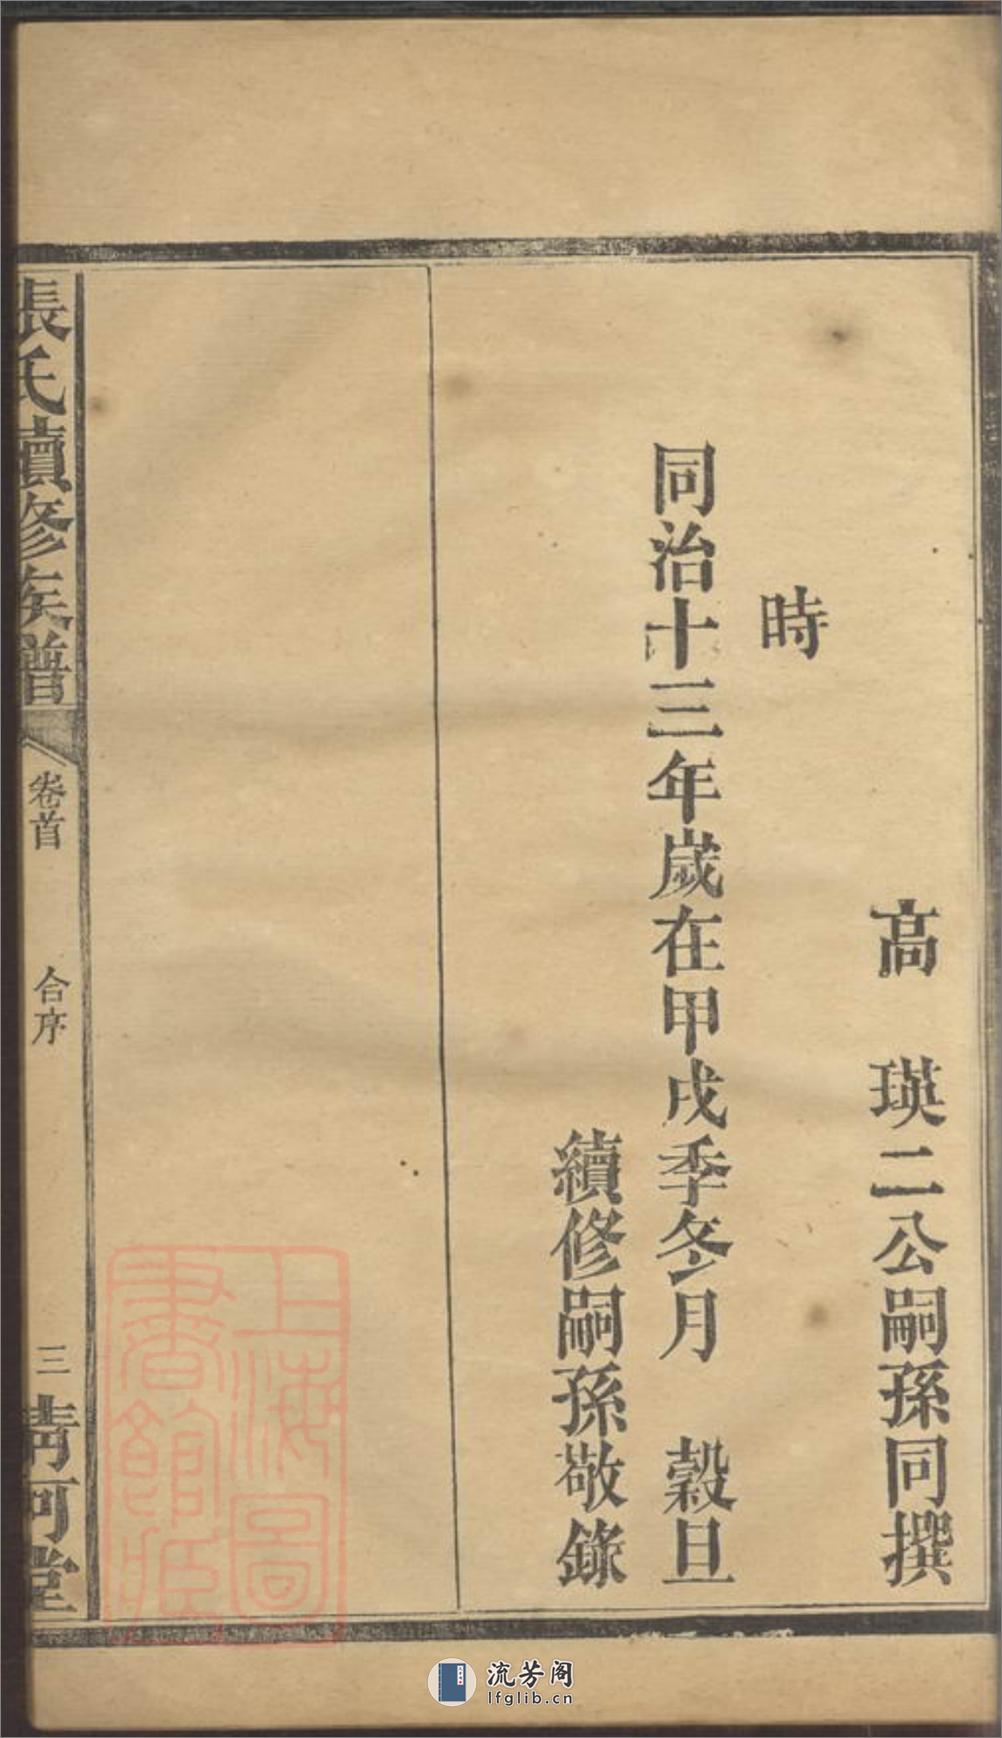 高 瑛二公嗣孫同撰
時
同治十三年歲在甲戌季冬月 穀旦
續修嗣孫敬錄
張氏續修族譜
卷首
合序
三
清河堂
上海圖
書館藏
流芳阁
lfglib.cn